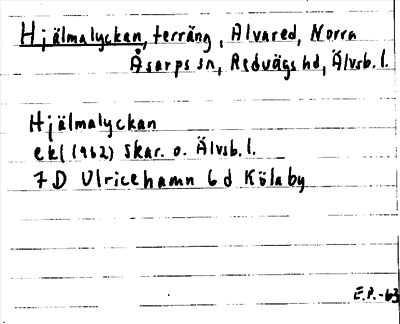 Hjälmalyckan, terräng, Alvared, Norra
Åsarps sn, Redvägs hd, Älvsb. l.
Hjälmalyckan
ekl (1962) Skar. o. Älvsb. l.
7 D Ulricehamn 6 d Kölaby
E.P.-63